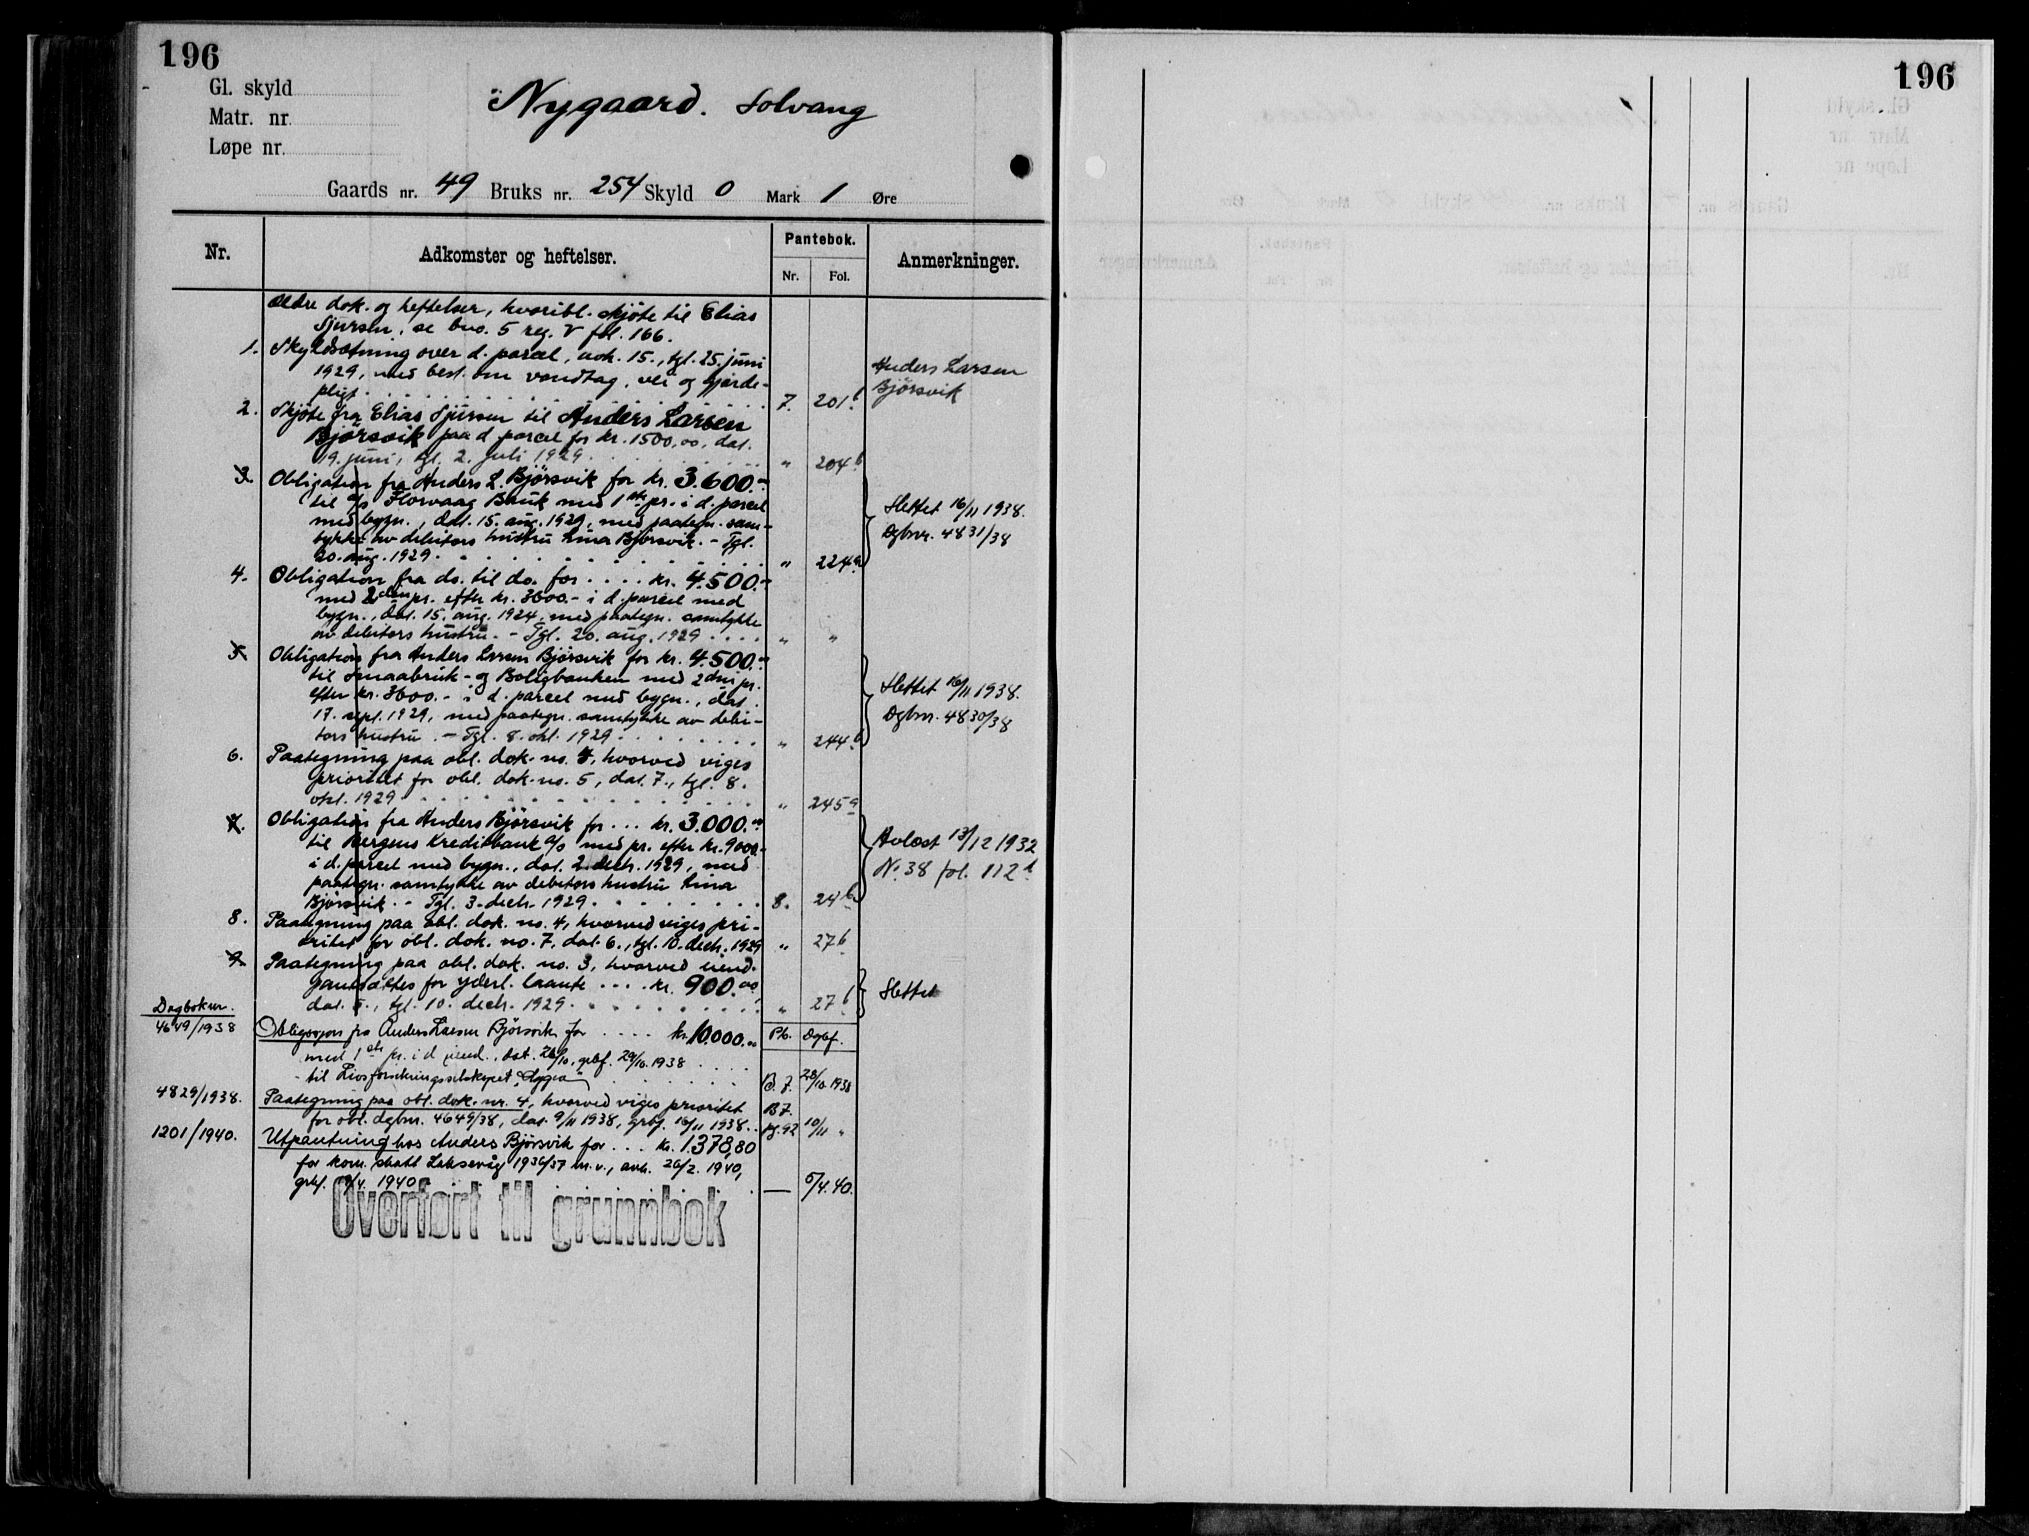 196
Gl. skyld
Matr. nr.
Løpe nr.
Nygaard. Solvang
Gaards nr. 49 Bruks nr. 254 Skyld 0 Mark 1 Øre
Nr. Adkomster og heftelser. Pantebok. Anmerkninger.
Nr. Fol.
Ældre dok. og heftelser, hvoribl. skjøte til Elias
Sjursen, se bno. 5 reg. V fol. 166.
1. Skyldsætning over d. parcel, avh. 15., tgl. 25. juni
1929, med best. om vandtag, vei og gjærde-
pligt 7. 201b
Anders Larsen
Bjørsvik
2. Skjøte fra Elias Sjursen til Anders Larsen
Bjørsvik paa d. parcel for kr. 1500,00, dat.
19. juni, tgl. 2. juli 1929 " 204b
3. Obligation fra Anders L. Bjørsvik for kr. 3.600.-
til a/s Florvaag Bruk med 1ste pr. i d. parcel
med bygn., dat. 15. aug. 1929, med paategn. sam-
tykke av debitors hustru Lina Bjørsvik. - Tgl.
20. aug. 1929 " 224a
Slettet 16/11 1938.
Dgbnr. 4831/38
4. Obligation fra do. til do. for .... kr. 4.500.-
med 2den pr. efter kr. 3600.- i d. parcel med
bygn., dat. 15. aug. 1924, med paategn. samtykke
av debitors hustru. - Tgl. 20. aug. 1929 .... " "
5. Obligation fra Anders Larsen Bjørsvik for kr. 4.500.-
til Smaabruk- og Boligbanken med 2den pr.
efter kr. 3600.- i d. parcel med bygn., dat.
17. sept. 1929, med paategn. samtykke av debi-
tors hustru. - Tgl. 8. okt. 1929 " 244b
Slettet 16/11 1938.
Dgbnr. 4830/38
6. Paategning paa obl. dok. no. 4, hvorved viges
prioritet for obl. dok. no. 5, dat. 7., tgl. 8.
okt. 1929 " 245a
7. Obligation fra Anders Bjørsvik for ... kr. 3.000.00
til Bergens Kreditbank a/s med pr. efter kr. 9000.-
i d. parcel med bygn., dat. 2. decb. 1929, med
paategn. samtykke av debitors hustru Lina
Bjørsvik. - Tgl. 3. decb. 1929 8. 24b
Avlæst 13/12 1932
No. 38 fol. 112b
8. Paategning paa obl. dok. no. 4, hvorved viges pri-
oritet for obl. dok. no. 7, dat. 6., tgl. 10. decb. 1929 " 27b
9. Paategning paa obl. dok. no. 3, hvorved eiend.
pantsættes for yderl. laante .... kr. 900.00
dat. 5., tgl. 10. decb. 1929 " 27b
Slettet
Dagboknr.
4649/1938 Obligasjon fra Anders Larsen Bjørsvik for .... kr. 10.000.00 Pb. Dgbf.
med 1ste pr. i d. eiend., dat. 26/10, grbf. 29/10. 1938 ....
til Livsforsikringsselskapet "Hygea" B. 7. 28/10. 1938
4829/1938. Paategning paa obl. dok. nr. 4, hvorved viges prioritet B7.
for obl. dgbnr. 4649/38, dat. 9/11 1938, grbf. 16/11 1938. pg. 92 10/11 "
1201/1940. Utpantning hos Anders Bjørsvik for ... kr. 1.378,80
for kom. skatt Laksevåg 1936/37 m.v., avh. 26/2. 1940,
grbf. 19/4 1940 — 5/4. 40.
Overført til grunnbok
196